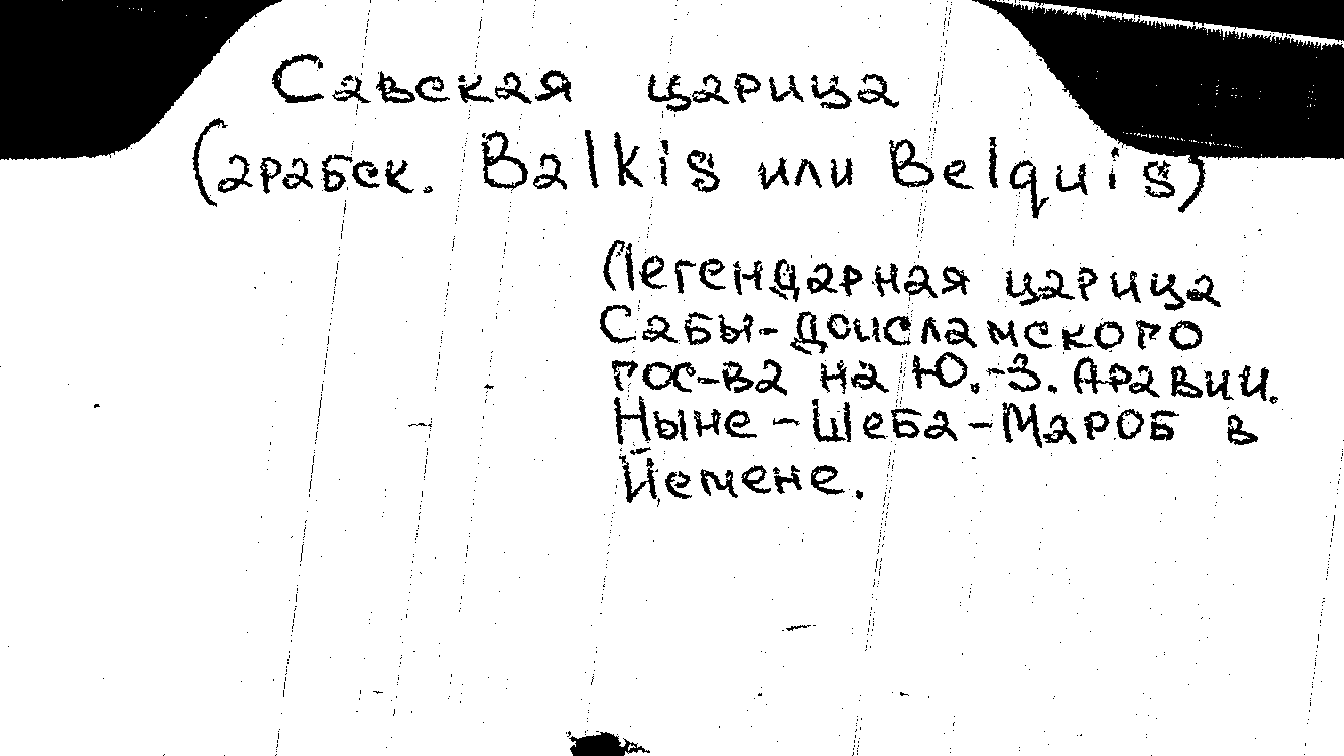 Савская царица
(арабск. Balkis или Belquis)
Легендарная царица
Сабы-доисламского
гос-ва на Ю.-З. Аравии.
Ныне - Шеба-Мароб в
Йемене.